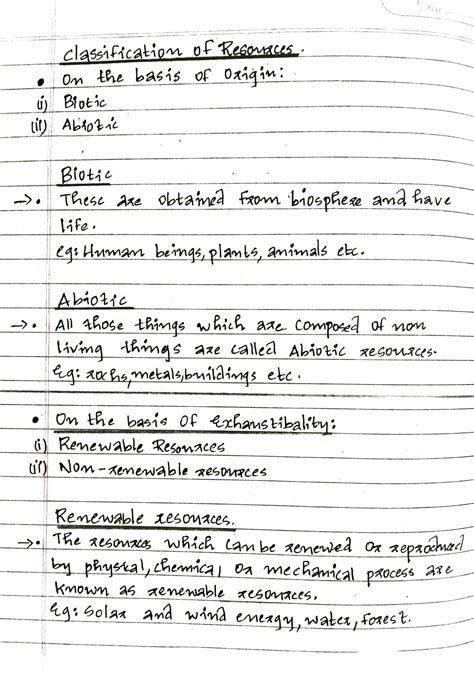 Classification of Resources.
• On the basis of Origin:
(i) Biotic
(ii) Abiotic
Biotic
→• These are obtained from biosphere and have
life.
eg: Human beings, plants, animals etc.
Abiotic
→• All those things which are composed of non
living things are called Abiotic resources.
Eg: rocks, metals, buildings etc.
• On the basis Of Exhaustibality:
(i) Renewable Resources
(ii) Non-renewable resources
Renewable resources.
→• The resources which can be renewed or reproduced
by physical, chemical or mechanical process are
known as renewable resources.
Eg: Solar and wind energy, water, forest.